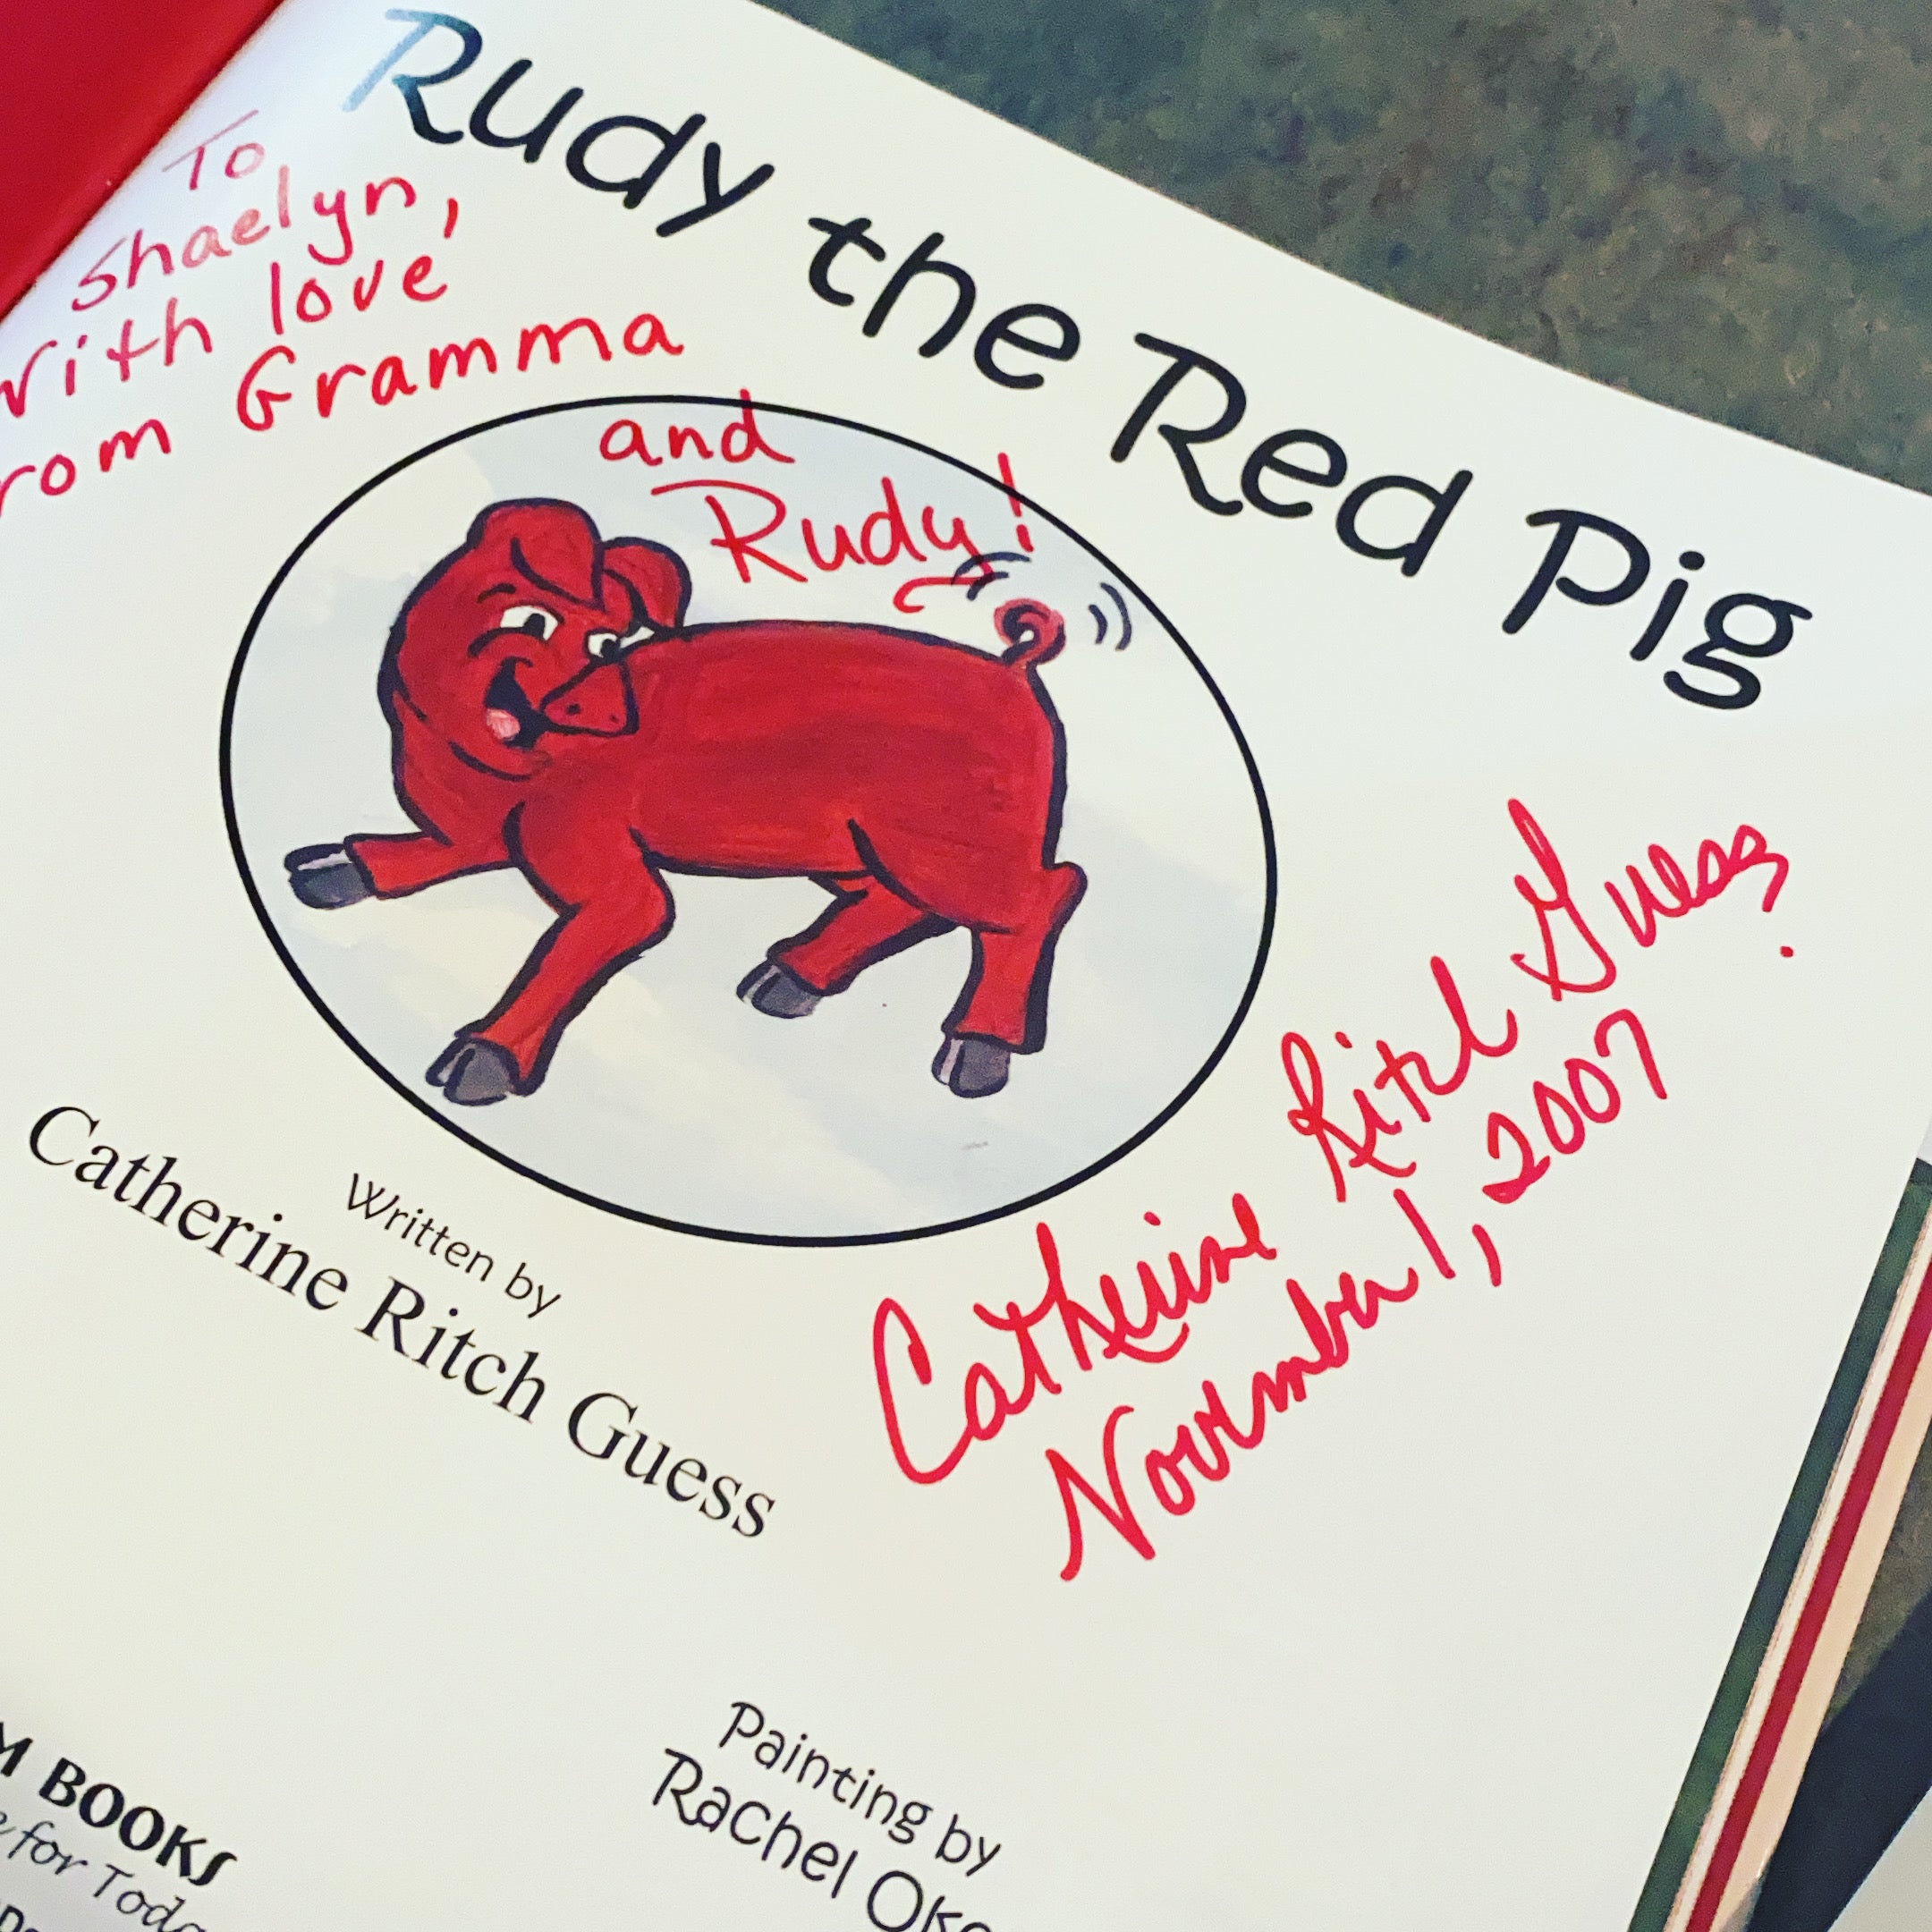 Rudy the Red Pig
To
Shaelyn,
With love
rom Gramma
and
Rudy!
Written by
Catherine Ritch Guess
Catherine Ritch Guess
November 1, 2007
Painting by
Rachel Oke
M BOOKS
for Toda